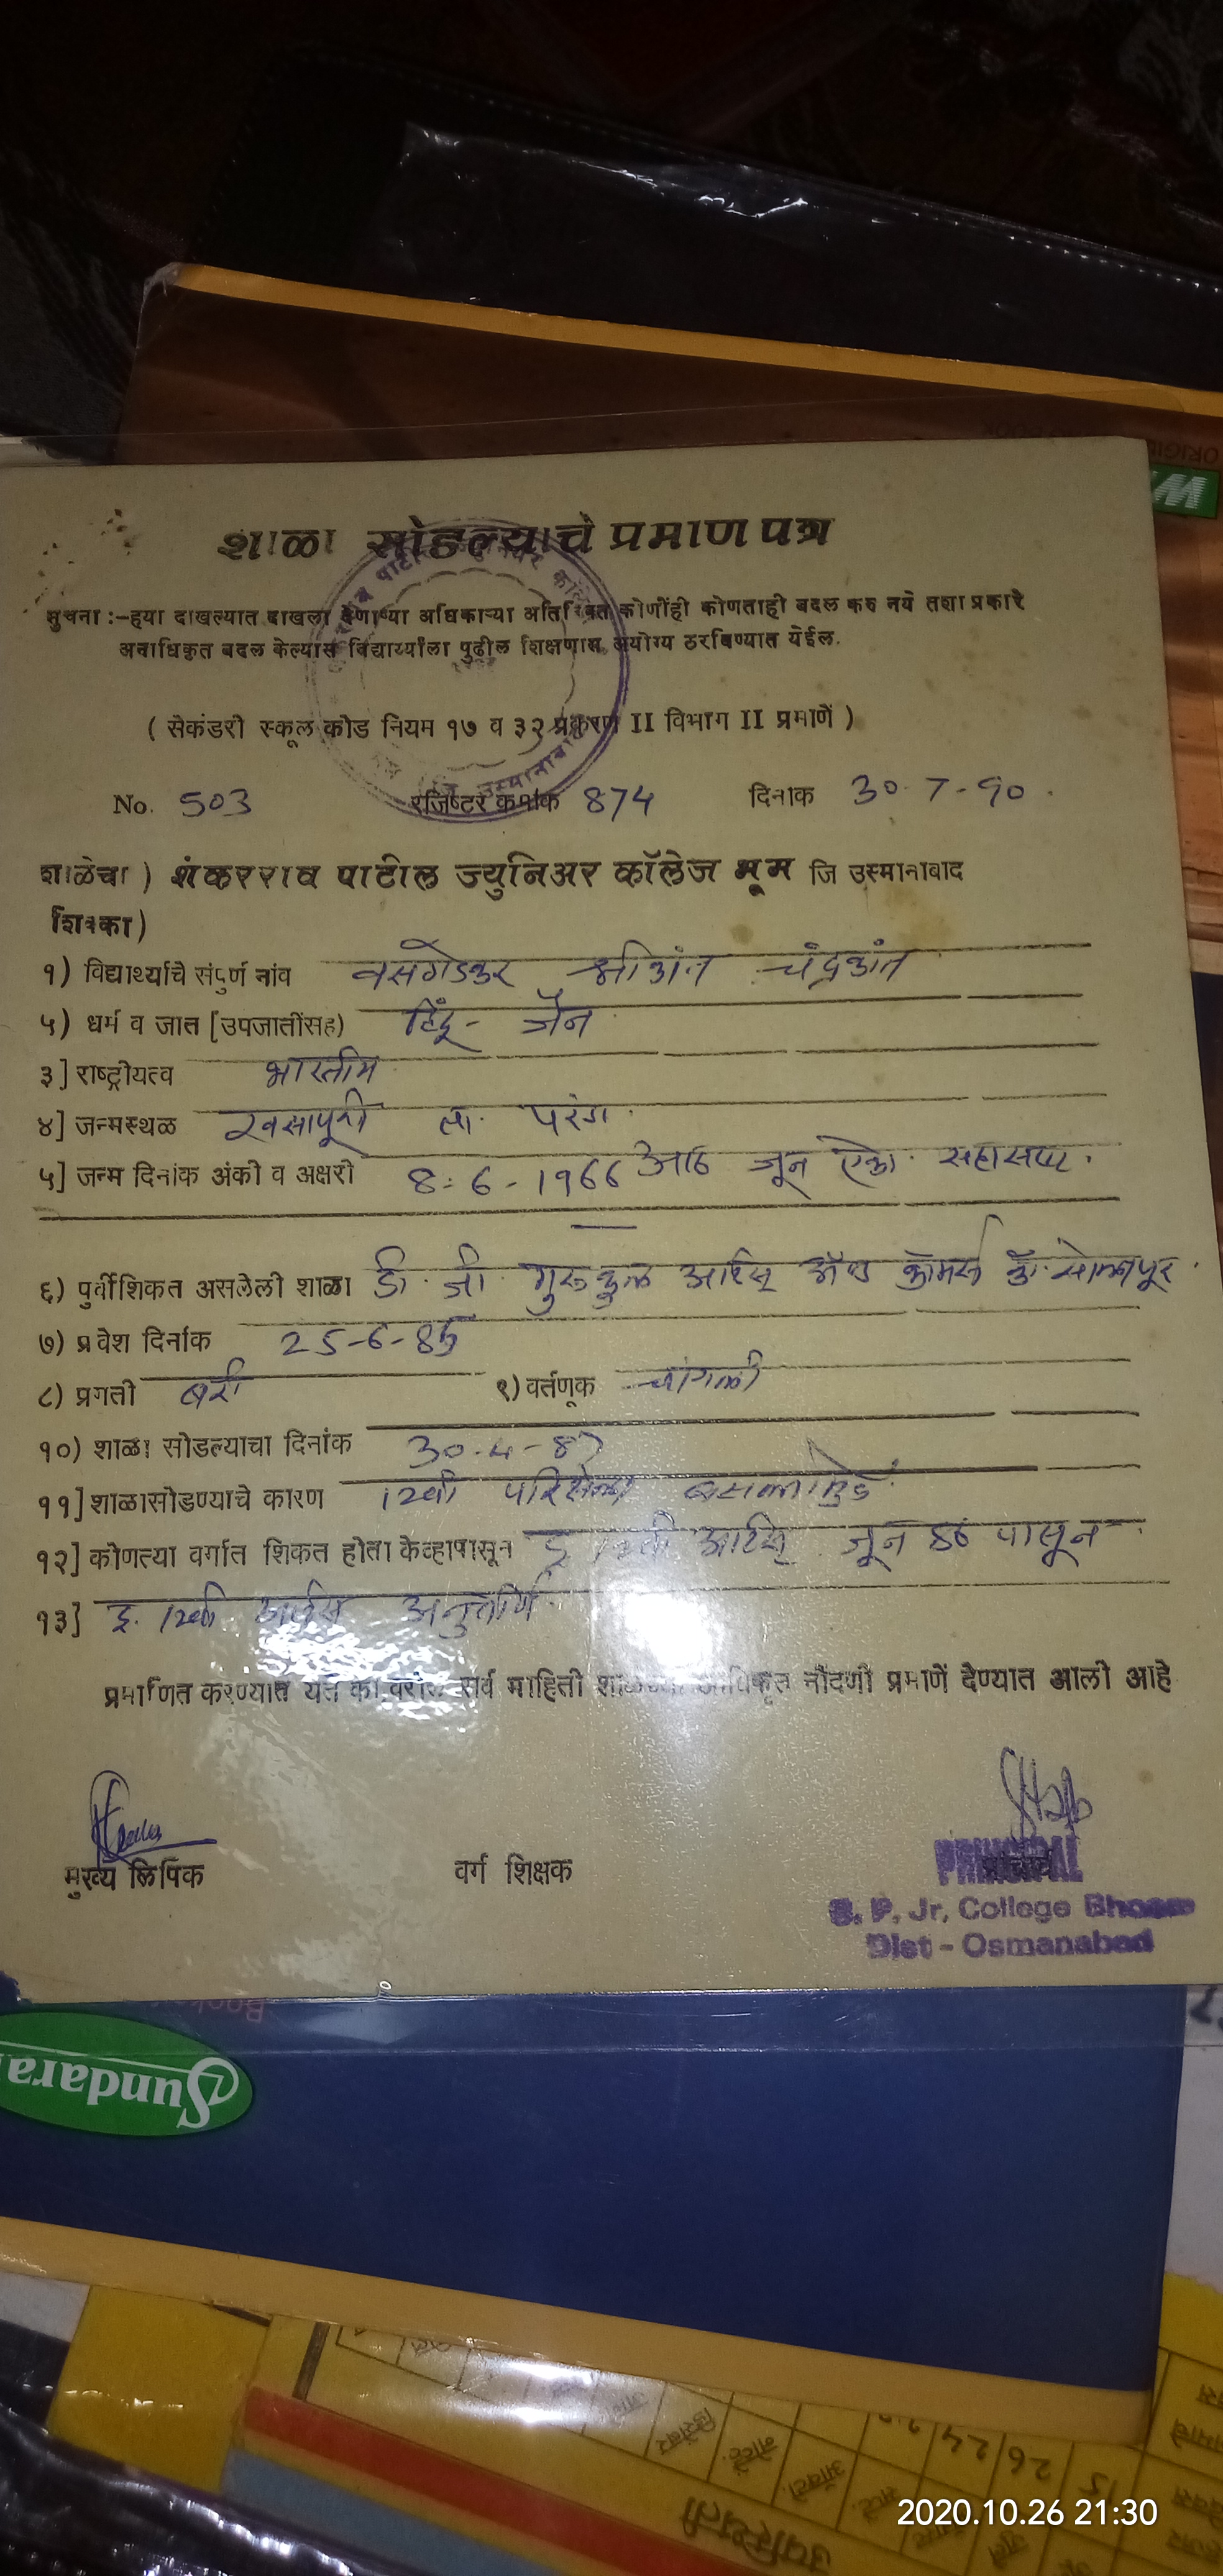 शाळा सोडल्याचे प्रमाण पत्र
सुचना :-ह्या दाखल्यात दाखला देणाऱ्या अधिकाऱ्या अतिरिक्त कोणीही कोणताही बदल करु नये तशा प्रकारे
अनाधिकृत बदल केल्यास विद्यार्थ्याला पुढील शिक्षणास अयोग्य ठरविण्यात येईल.
( सेकंडरी स्कूल कोड नियम १७ व ३२ प्रकरण II विभाग II प्रमाणें )
No. 503 रजिष्टर क्रमांक 874 दिनाक 30-7-90.
शाळेचा ) शंकरराव पाटील ज्युनिअर कॉलेज भूम जि उस्मानाबाद
शिक्का)
१) विद्यार्थ्याचे संपुर्ण नांव वसगडेकर श्रीकांत चंद्रकांत
५) धर्म व जात [उपजातींसह) हिंदू - जैन
३] राष्ट्रीयत्व भारतीय
४] जन्मस्थळ खासापूरी ता. परंडा
५] जन्म दिनांक अंकी व अक्षरी 8-6-1966 आठ जून
६) पुर्वीशिकत असलेली शाळा डी. जी. गुरुकुल आर्टस् अँण्ड कॉमर्स कॉ. सोलापूर.
७) प्रवेश दिनांक 25-6-85
८) प्रगती बरी ९) वर्तणूक चांगली
१०) शाळा सोडल्याचा दिनांक 30-4-87
११] शाळासोडण्याचे कारण 12वी परिक्षेला बसल्यामुळे
१२] कोणत्या वर्गात शिकत होता केव्हापासून इ. 12वी आर्टस् जून 86 पासून
१३] इ. 12वी आर्टस अनुत्तीर्ण
प्रमाणित करण्यात येते की वरील सर्व माहिती शाळेच्या अधिकृत नोंदणी प्रमाणें देण्यात आली आहे
मुख्य लिपिक वर्ग शिक्षक
PRINCIPAL
S. P. Jr. College Bhoom
Dist - Osmanabad
Sundara
उपस्थिती
26 24
2020.10.26 21:30